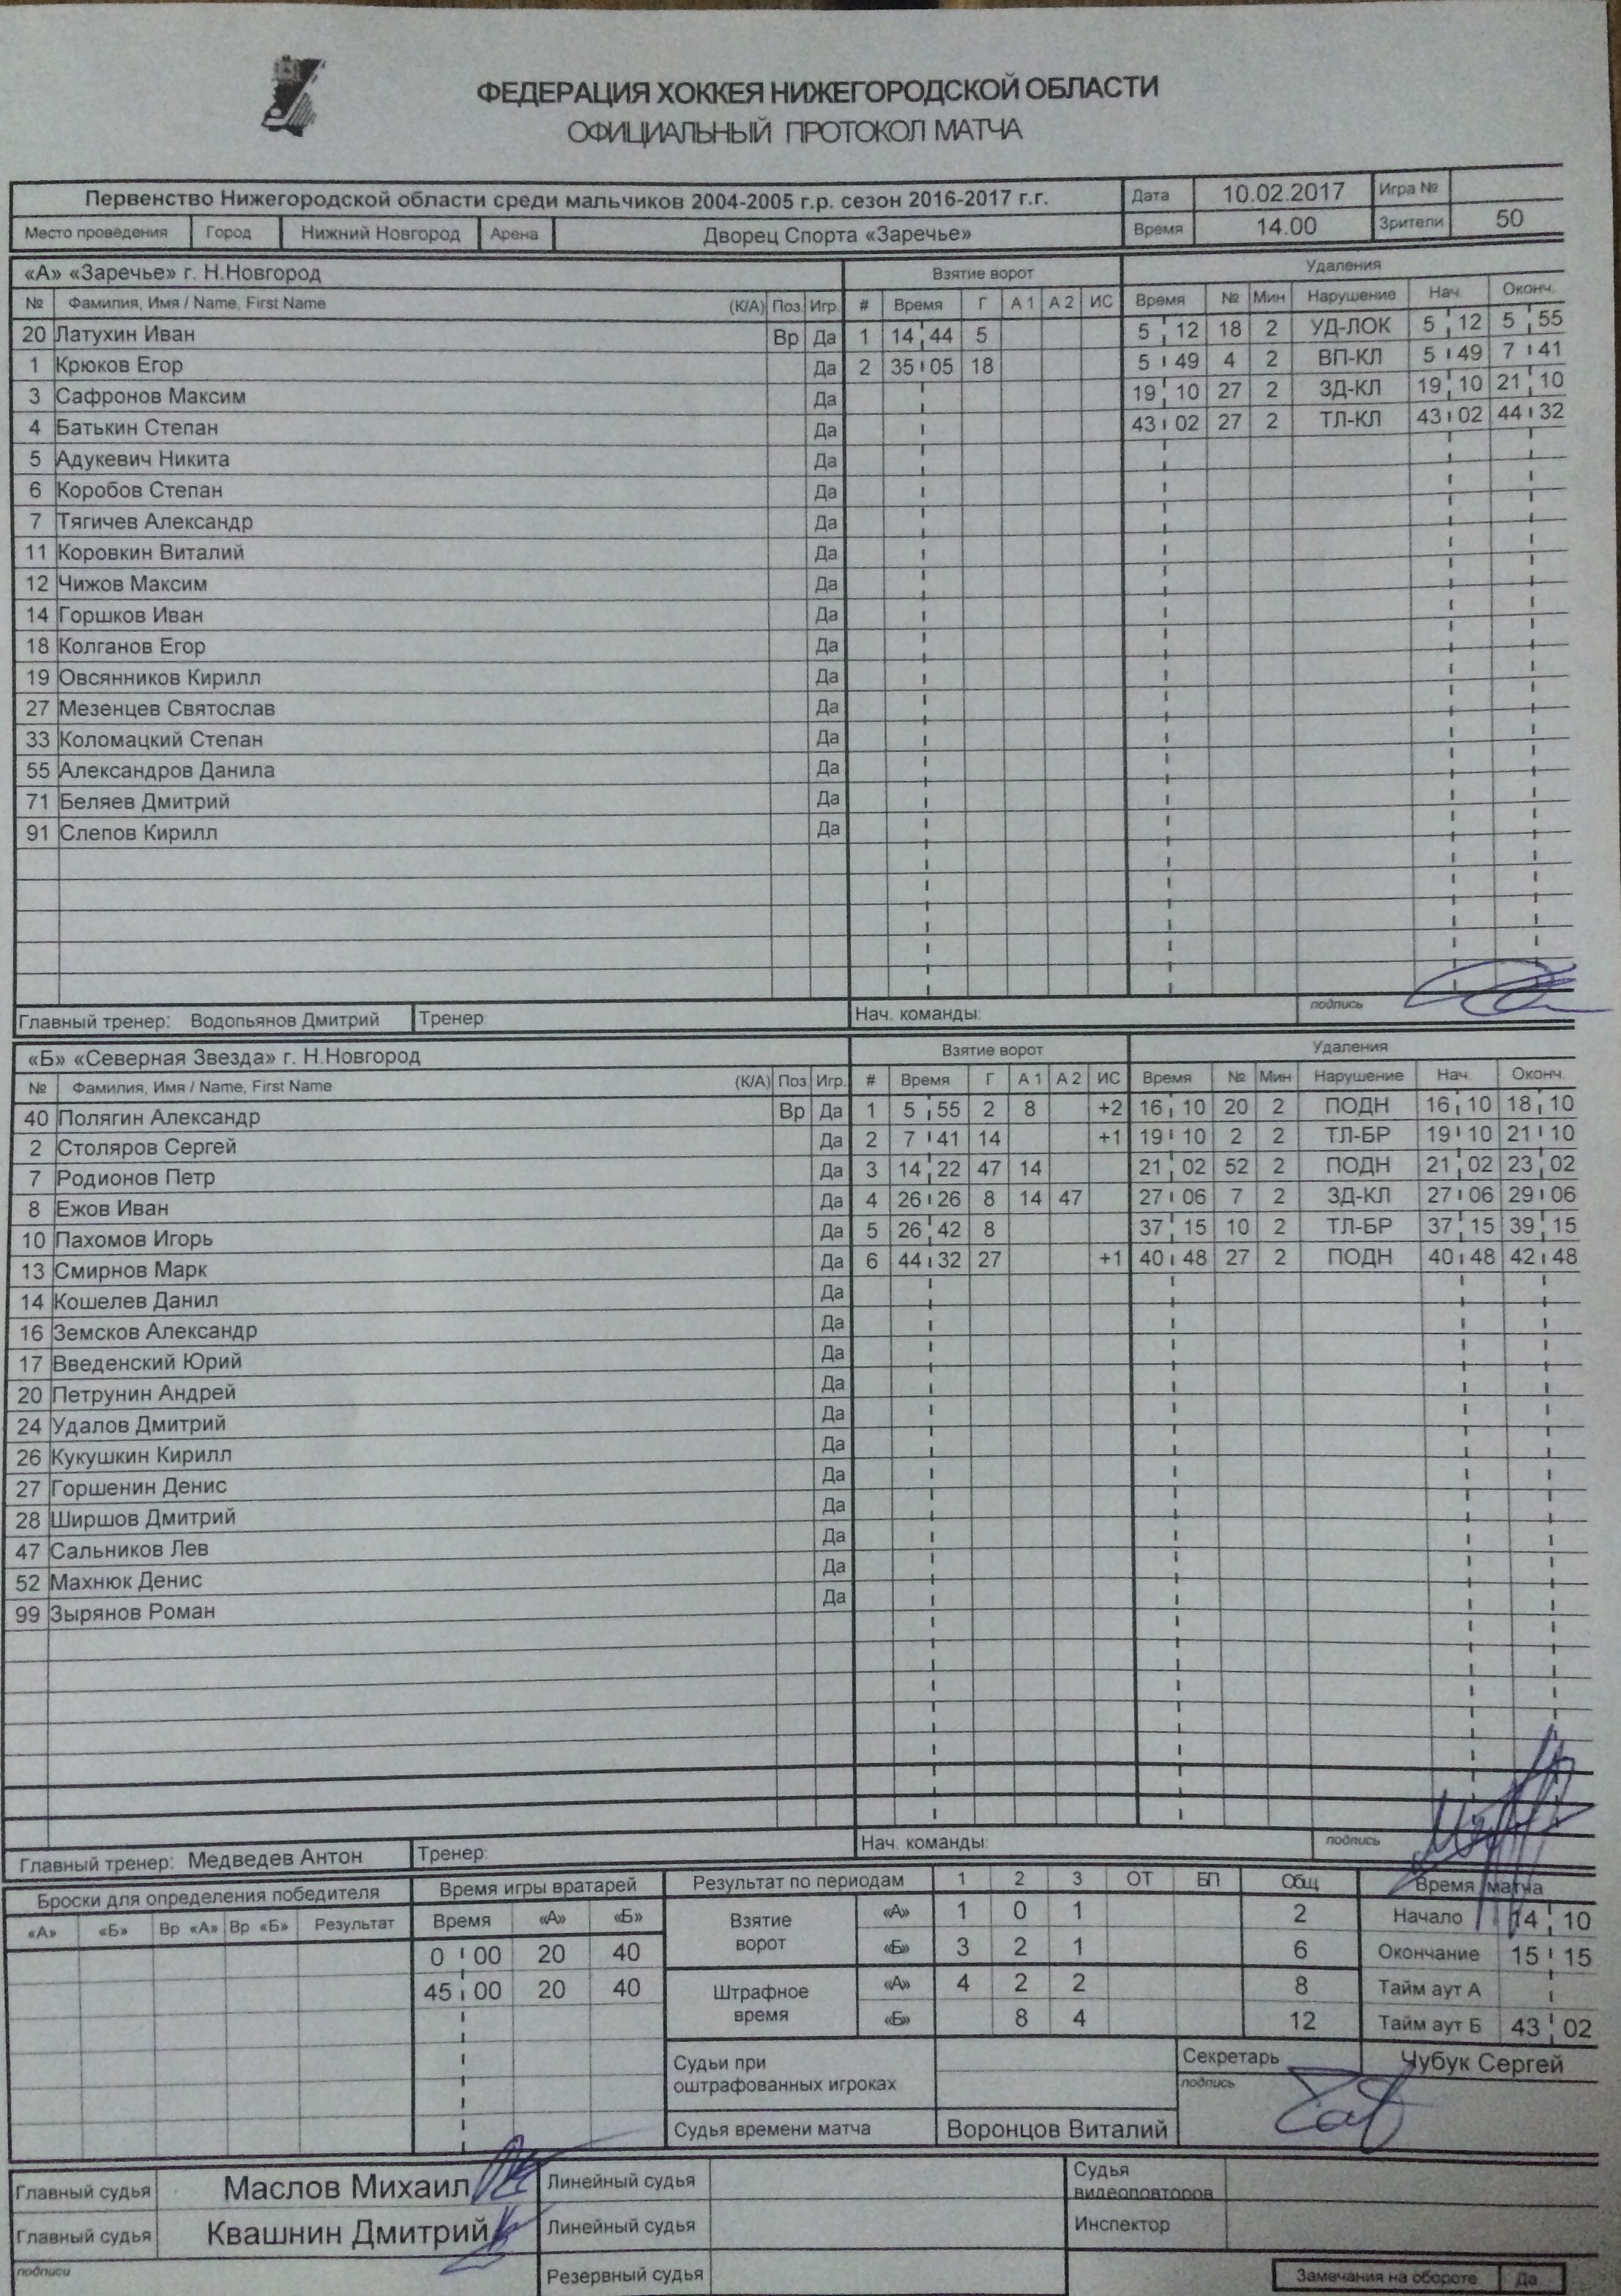 ФЕДЕРАЦИЯ ХОККЕЯ НИЖЕГОРОДСКОЙ ОБЛАСТИ
ОФИЦИАЛЬНЫЙ ПРОТОКОЛ МАТЧА
Первенство Нижегородской области среди мальчиков 2004-2005 г.р. сезон 2016-2017 г.г. Дата 10.02.2017 Игра №
Место проведения Город Нижний Новгород Арена Дворец Спорта «Заречье» Время 14.00 Зрители 50
«А» «Заречье» г. Н.Новгород Взятие ворот Удаления
№ Фамилия, Имя / Name, First Name (К/А) Поз Игр. # Время Г А 1 А 2 ИС Время № Мин Нарушение Нач. Оконч.
20 Латухин Иван Вр Да 1 14 44 5 5 12 18 2 УД-ЛОК 5 12 5 55
1 Крюков Егор Да 2 35 05 18 5 49 4 2 ВП-КЛ 5 49 7 41
3 Сафронов Максим Да 19 10 27 2 ЗД-КЛ 19 10 21 10
4 Батькин Степан Да 43 02 27 2 ТЛ-КЛ 43 02 44 32
5 Адукевич Никита Да
6 Коробов Степан Да
7 Тягичев Александр Да
11 Коровкин Виталий Да
12 Чижов Максим Да
14 Горшков Иван Да
18 Колганов Егор Да
19 Овсянников Кирилл Да
27 Мезенцев Святослав Да
33 Коломацкий Степан Да
55 Александров Данила Да
71 Беляев Дмитрий Да
91 Слепов Кирилл Да
Главный тренер: Водопьянов Дмитрий Тренер Нач. команды: подпись
«Б» «Северная Звезда» г. Н.Новгород Взятие ворот Удаления
№ Фамилия, Имя / Name, First Name (К/А) Поз Игр. # Время Г А 1 А 2 ИС Время № Мин Нарушение Нач. Оконч.
40 Полягин Александр Вр Да 1 5 55 2 8 +2 16 10 20 2 ПОДН 16 10 18 10
2 Столяров Сергей Да 2 7 41 14 +1 19 10 2 2 ТЛ-БР 19 10 21 10
7 Родионов Петр Да 3 14 22 47 14 21 02 52 2 ПОДН 21 02 23 02
8 Ежов Иван Да 4 26 26 8 14 47 27 06 7 2 ЗД-КЛ 27 06 29 06
10 Пахомов Игорь Да 5 26 42 8 37 15 10 2 ТЛ-БР 37 15 39 15
13 Смирнов Марк Да 6 44 32 27 +1 40 48 27 2 ПОДН 40 48 42 48
14 Кошелев Данил Да
16 Земсков Александр Да
17 Введенский Юрий Да
20 Петрунин Андрей Да
24 Удалов Дмитрий Да
26 Кукушкин Кирилл Да
27 Горшенин Денис Да
28 Ширшов Дмитрий Да
47 Сальников Лев Да
52 Махнюк Денис Да
99 Зырянов Роман Да
Главный тренер: Медведев Антон Тренер: Нач. команды: подпись
Броски для определения победителя Время игры вратарей Результат по периодам 1 2 3 ОТ БП Общ Время матча
«А» «Б» Вр «А» Вр «Б» Результат Время «А» «Б» Взятие ворот «А» 1 0 1 2 Начало 14 10
0 00 20 40 «Б» 3 2 1 6 Окончание 15 15
45 00 20 40 Штрафное время «А» 4 2 2 8 Тайм аут А
«Б» 8 4 12 Тайм аут Б 43 02
Судьи при оштрафованных игроках Секретарь Чубук Сергей
подпись
Судья времени матча Воронцов Виталий
Главный судья Маслов Михаил Линейный судья Судья видеоповторов
Главный судья Квашнин Дмитрий Линейный судья Инспектор
подписи Резервный судья Замечания на обороте Да